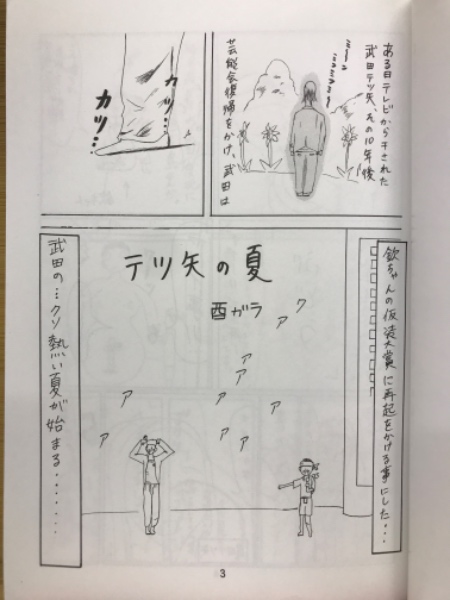 ある日テレビから干された
武田テツ矢、その10年後
芸能会復帰をかけ、武田は
カッ…
カッ…
欽ちゃんの仮装大賞に再起をかける事にした…
テツ矢の夏
酉ガラ
ク
ア
ア
ア
ア
ア
ア
ア
ア
ア
武田の…クソ熱い夏が始まる……
3